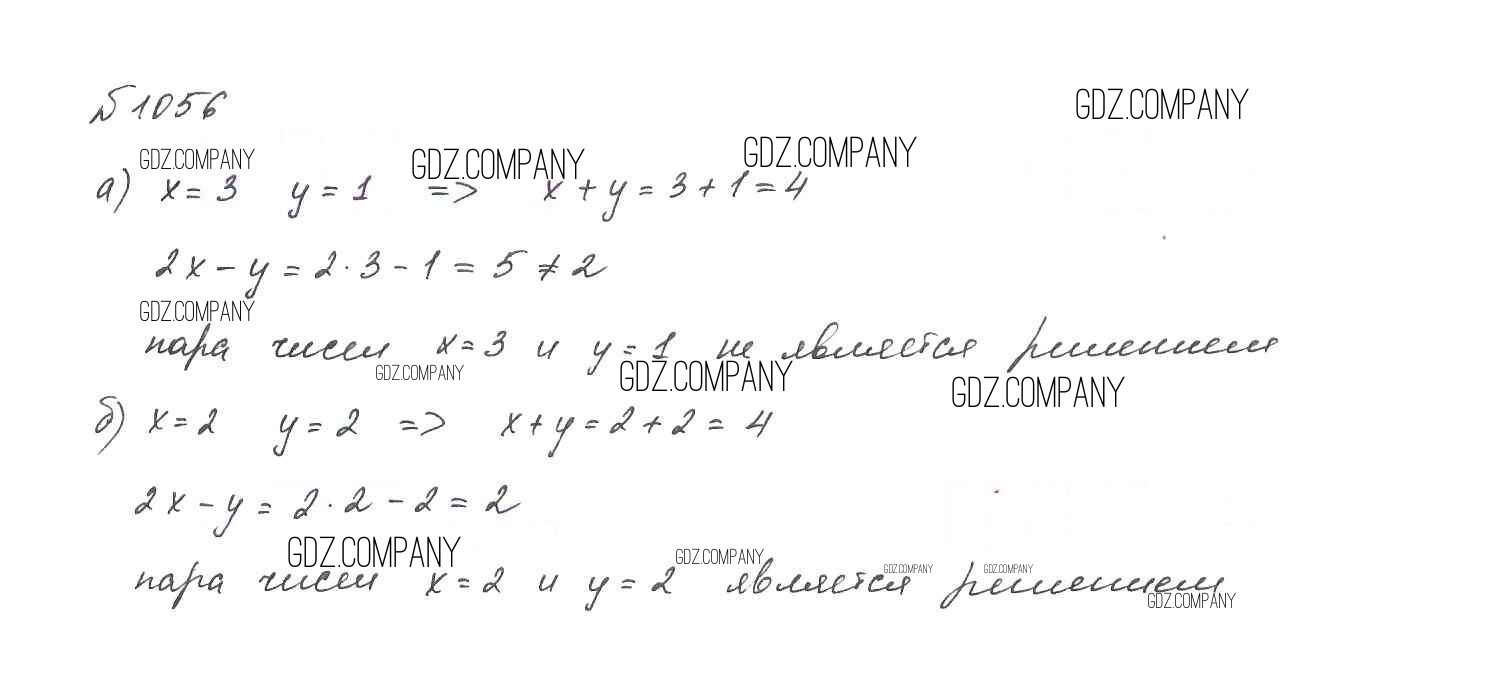 №1056
GDZ.COMPANY
GDZ.COMPANY GDZ.COMPANY GDZ.COMPANY
а) x = 3 y = 1 => x + y = 3 + 1 = 4
2x - y = 2 · 3 - 1 = 5 ≠ 2
GDZ.COMPANY
пара чисел x = 3 и y = 1 не является решением
GDZ.COMPANY GDZ.COMPANY GDZ.COMPANY
б) x = 2 y = 2 => x + y = 2 + 2 = 4
2x - y = 2 · 2 - 2 = 2
GDZ.COMPANY GDZ.COMPANY GDZ.COMPANY GDZ.COMPANY
пара чисел x = 2 и y = 2 является решением
GDZ.COMPANY